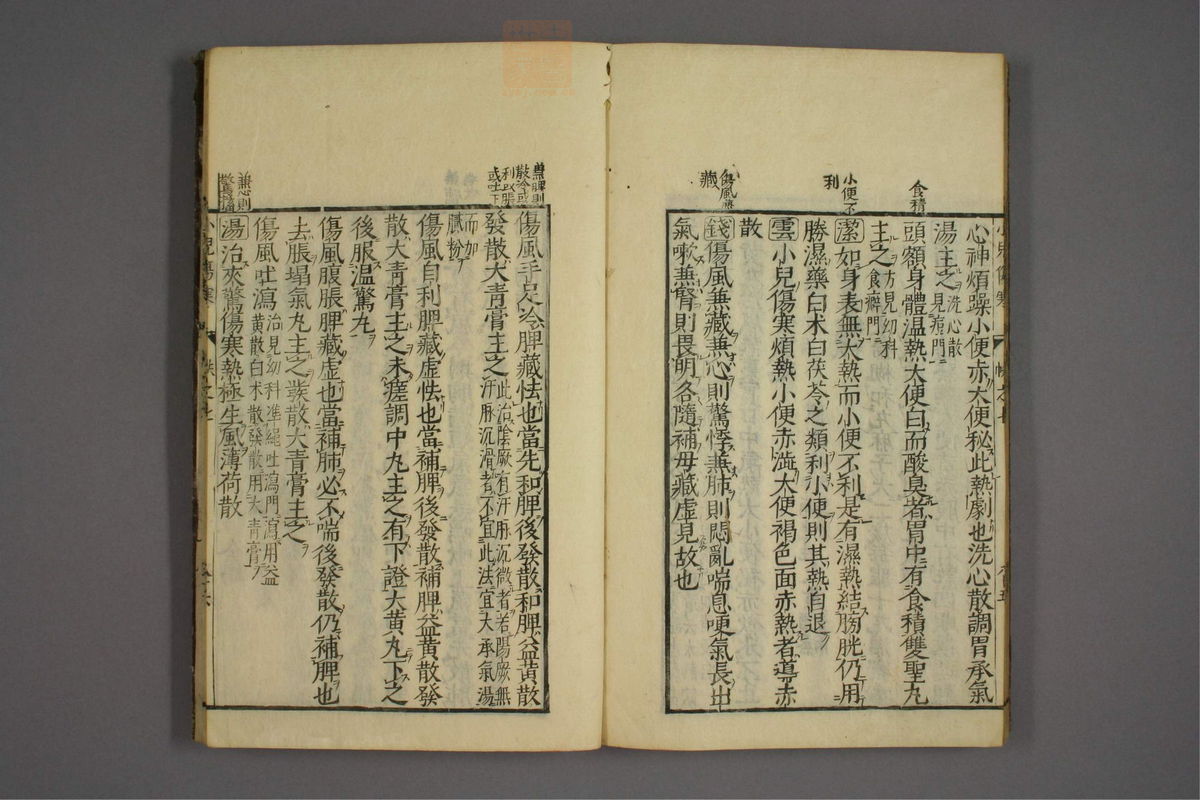 心神煩躁小便赤大便秘此熱劇也洗心散調胃承氣
湯主之洗心散見瘧門
食積
頭額身體溫熱大便白而酸臭者胃中有食積雙聖丸
主之方見幼科食癖門
小便不利
潔如身表無大熱而小便不利是有濕熱結膀胱仍用
勝濕藥白术白茯苓之類利小便則其熱自退
雲小兒傷寒煩熱小便赤澁大便褐色面赤熱者導赤
散
傷風兼藏
錢傷風兼藏兼心則驚悸兼肺則悶亂喘息哽氣長出
氣嗽兼腎則畏明各隨補母藏虛見故也
兼脾則
散冷或
利或脹
或吐下
傷風手足冷脾藏怯也當先和脾後發散和脾益黃散
發散大青膏主之此治陰厥有汗脉沉微者若陽厥無
汗脉沉滑者不宜此法宜大承氣湯
而加
膩粉
傷風自利脾藏虛怯也當補脾後發散補脾益黃散發
散大青膏主之未瘥調中丸主之有下證大黃丸下之
後服溫驚丸
傷風腹脹脾藏虛也當補脾必不喘後發散仍補脾也
去脹塌氣丸主之發散大青膏主之
傷風吐瀉治見幼科準繩吐瀉門瀉用益
黃散白术散發散用大青膏
兼心則
湯治夾驚傷寒熱極生風薄荷散